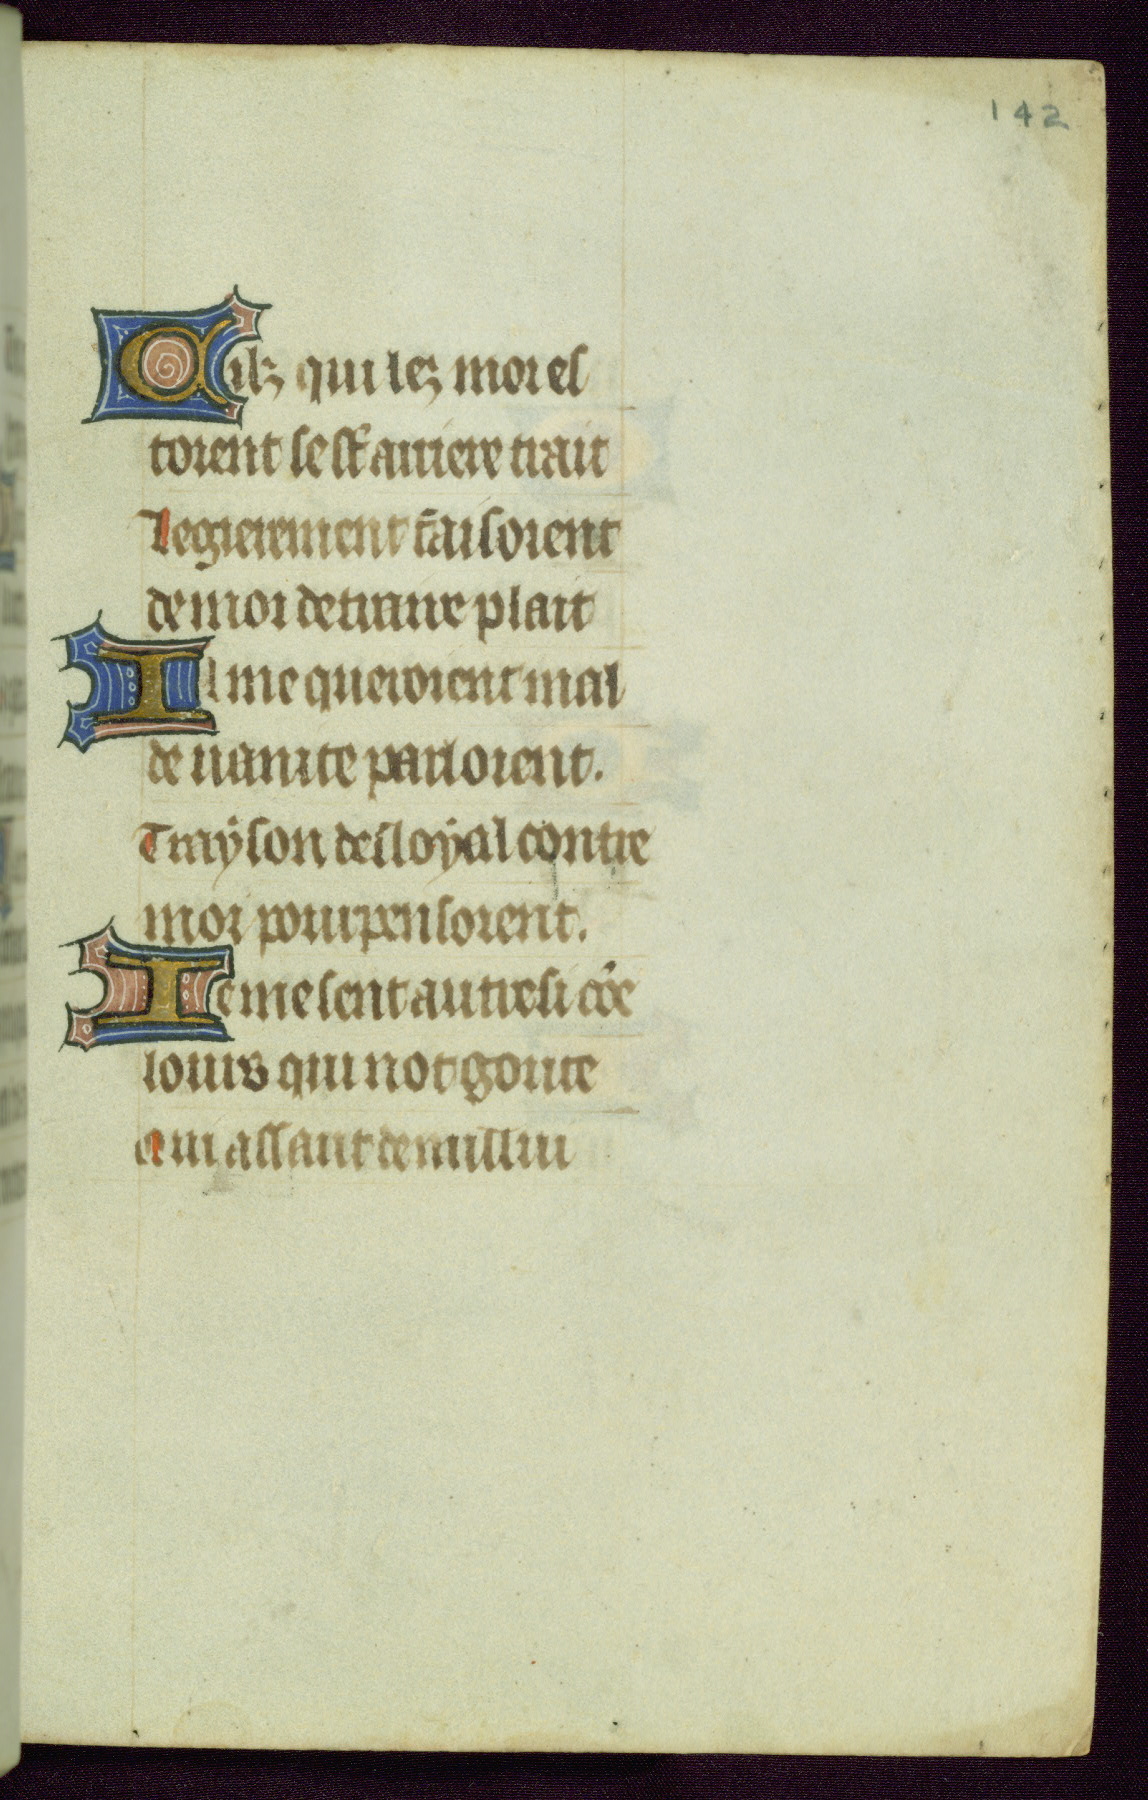 142
Cilz qui lez moi es
toient se st̄ arriere trait
Legierement f̄aisoient
de moi de traire plait
Il me queroient mal
de uanite parloient.
Traÿson desloÿal contre
moi pourpensoient.
Ie me sent autresi cōe
lours qui not goute
Qui assaut de nullui